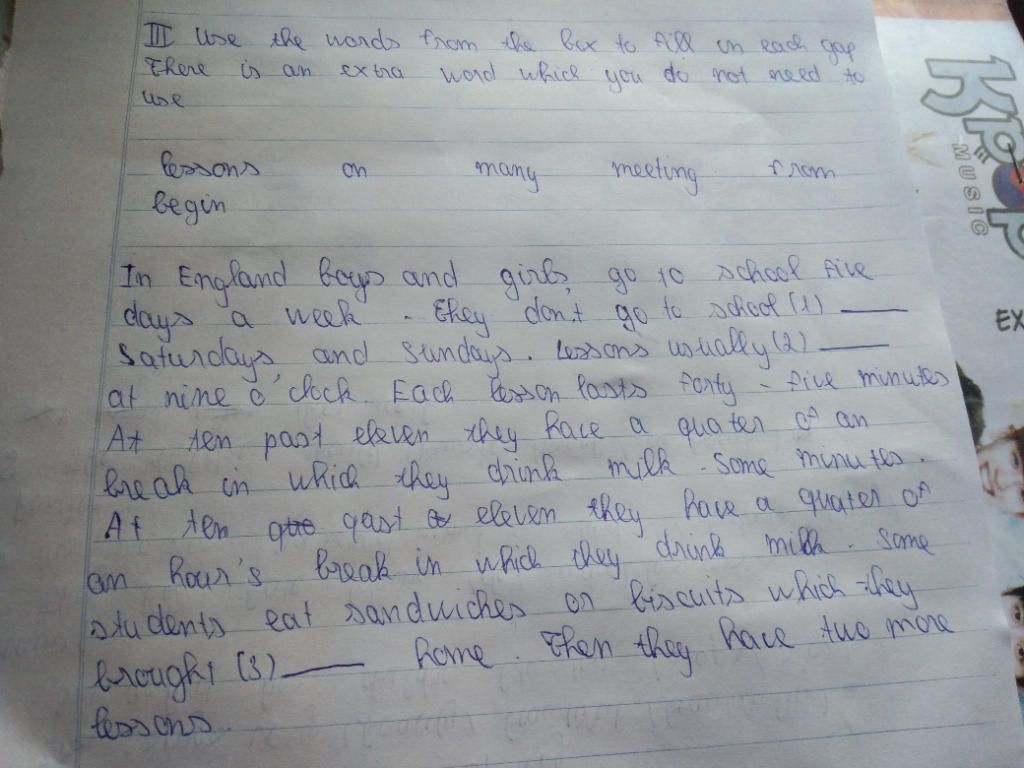 III Use the words from the box to fill in each gap
There is an extra word which you do not need to
use
lessons on many meeting from
begin
In England boys and girls go to school five
days a week. They don't go to school (1) ___
Saturdays and Sundays. Lessons usually (2) ___
at nine o'clock. Each lesson lasts forty - five minutes
At ten past eleven they have a quater of an
break in which they drink milk. Some minutes.
At ten past eleven they have a quater of
an hour's break in which they drink milk. Some
students eat sandwiches or biscuits which they
brought (3) ___ home. Then they have two more
lessons.
Kpop
MUSIC
EX